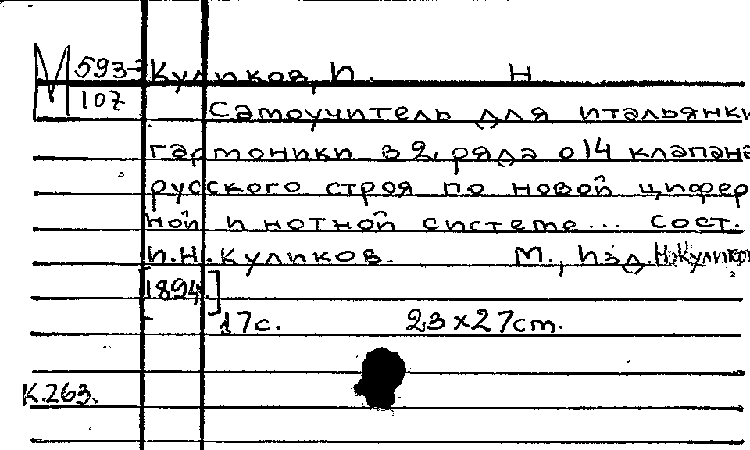 М 593-3 Куликов, И. Н
107 Самоучитель для итальянки
гармоники в 2 ряда о 14 клапана
русского строя по новой цифер
ной и нотной системе... Сост.
И.Н. Куликов. М., Изд. Н. Куликов
[1894]
17с. 23x27cm.
К.263.